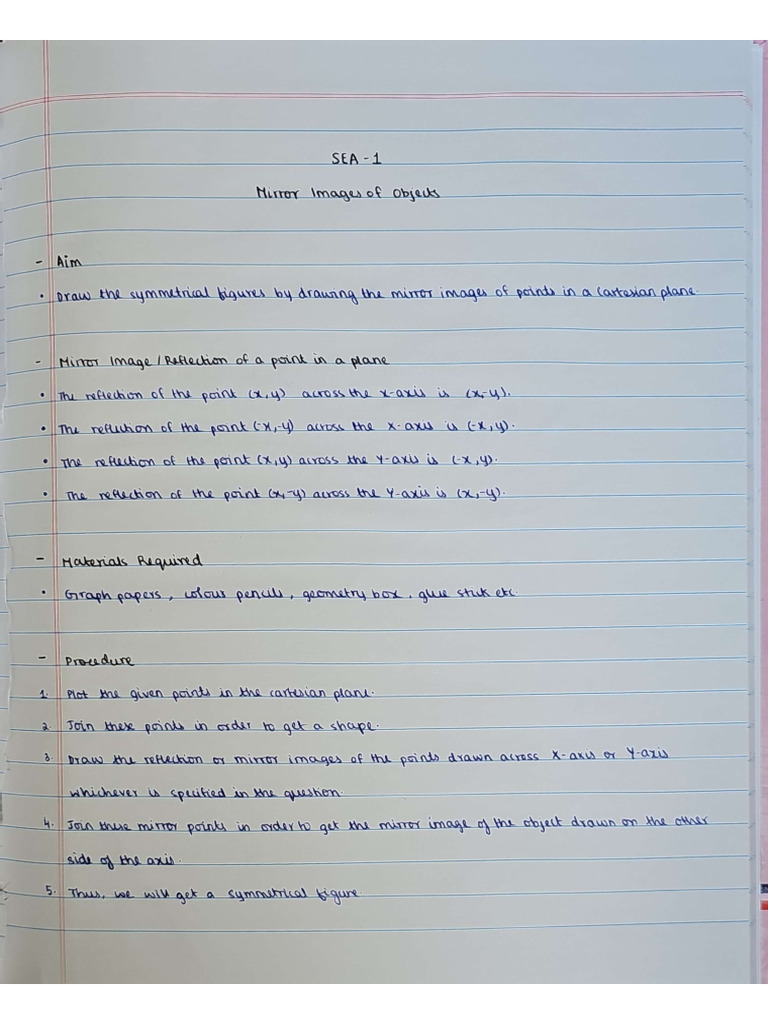 SEA - 1
Mirror Images of Objects
- Aim
• Draw the symmetrical figures by drawing the mirror images of points in a Cartesian plane.
- Mirror Image / Reflection of a point in a plane
• The reflection of the point (x,y) across the x-axis is (x,-y).
• The reflection of the point (-x,-y) across the X-axis is (-x,y).
• The reflection of the point (x,y) across the Y-axis is (-x,y).
• The reflection of the point (x,-y) across the Y-axis is (x,-y).
- Materials Required
• Graph papers, colour pencils, geometry box, glue stick etc.
- Procedure
1. Plot the given points in the cartesian plane.
2. Join these points in order to get a shape.
3. Draw the reflection or mirror images of the points drawn across X-axis or Y-axis
whichever is specified in the question.
4. Join these mirror points in order to get the mirror image of the object drawn on the other
side of the axis.
5. Thus, we will get a symmetrical figure.